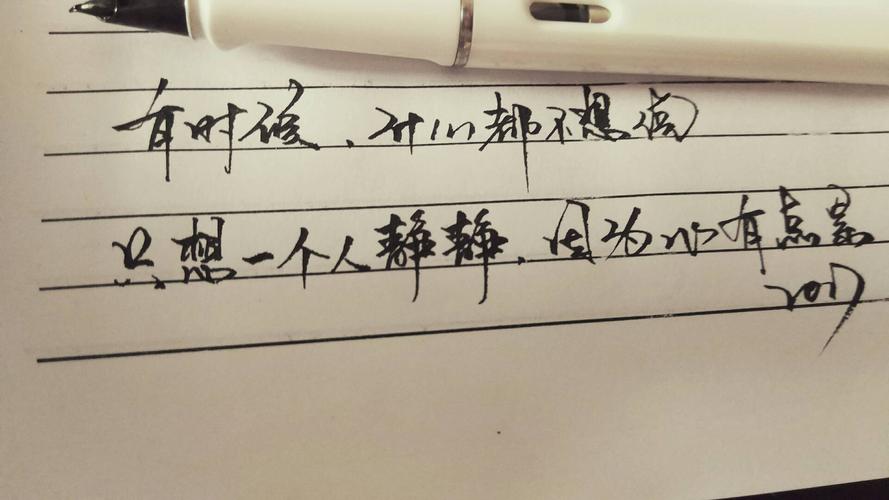 有时候、什么都不想
只想一个人静静，因为心有点累
2017